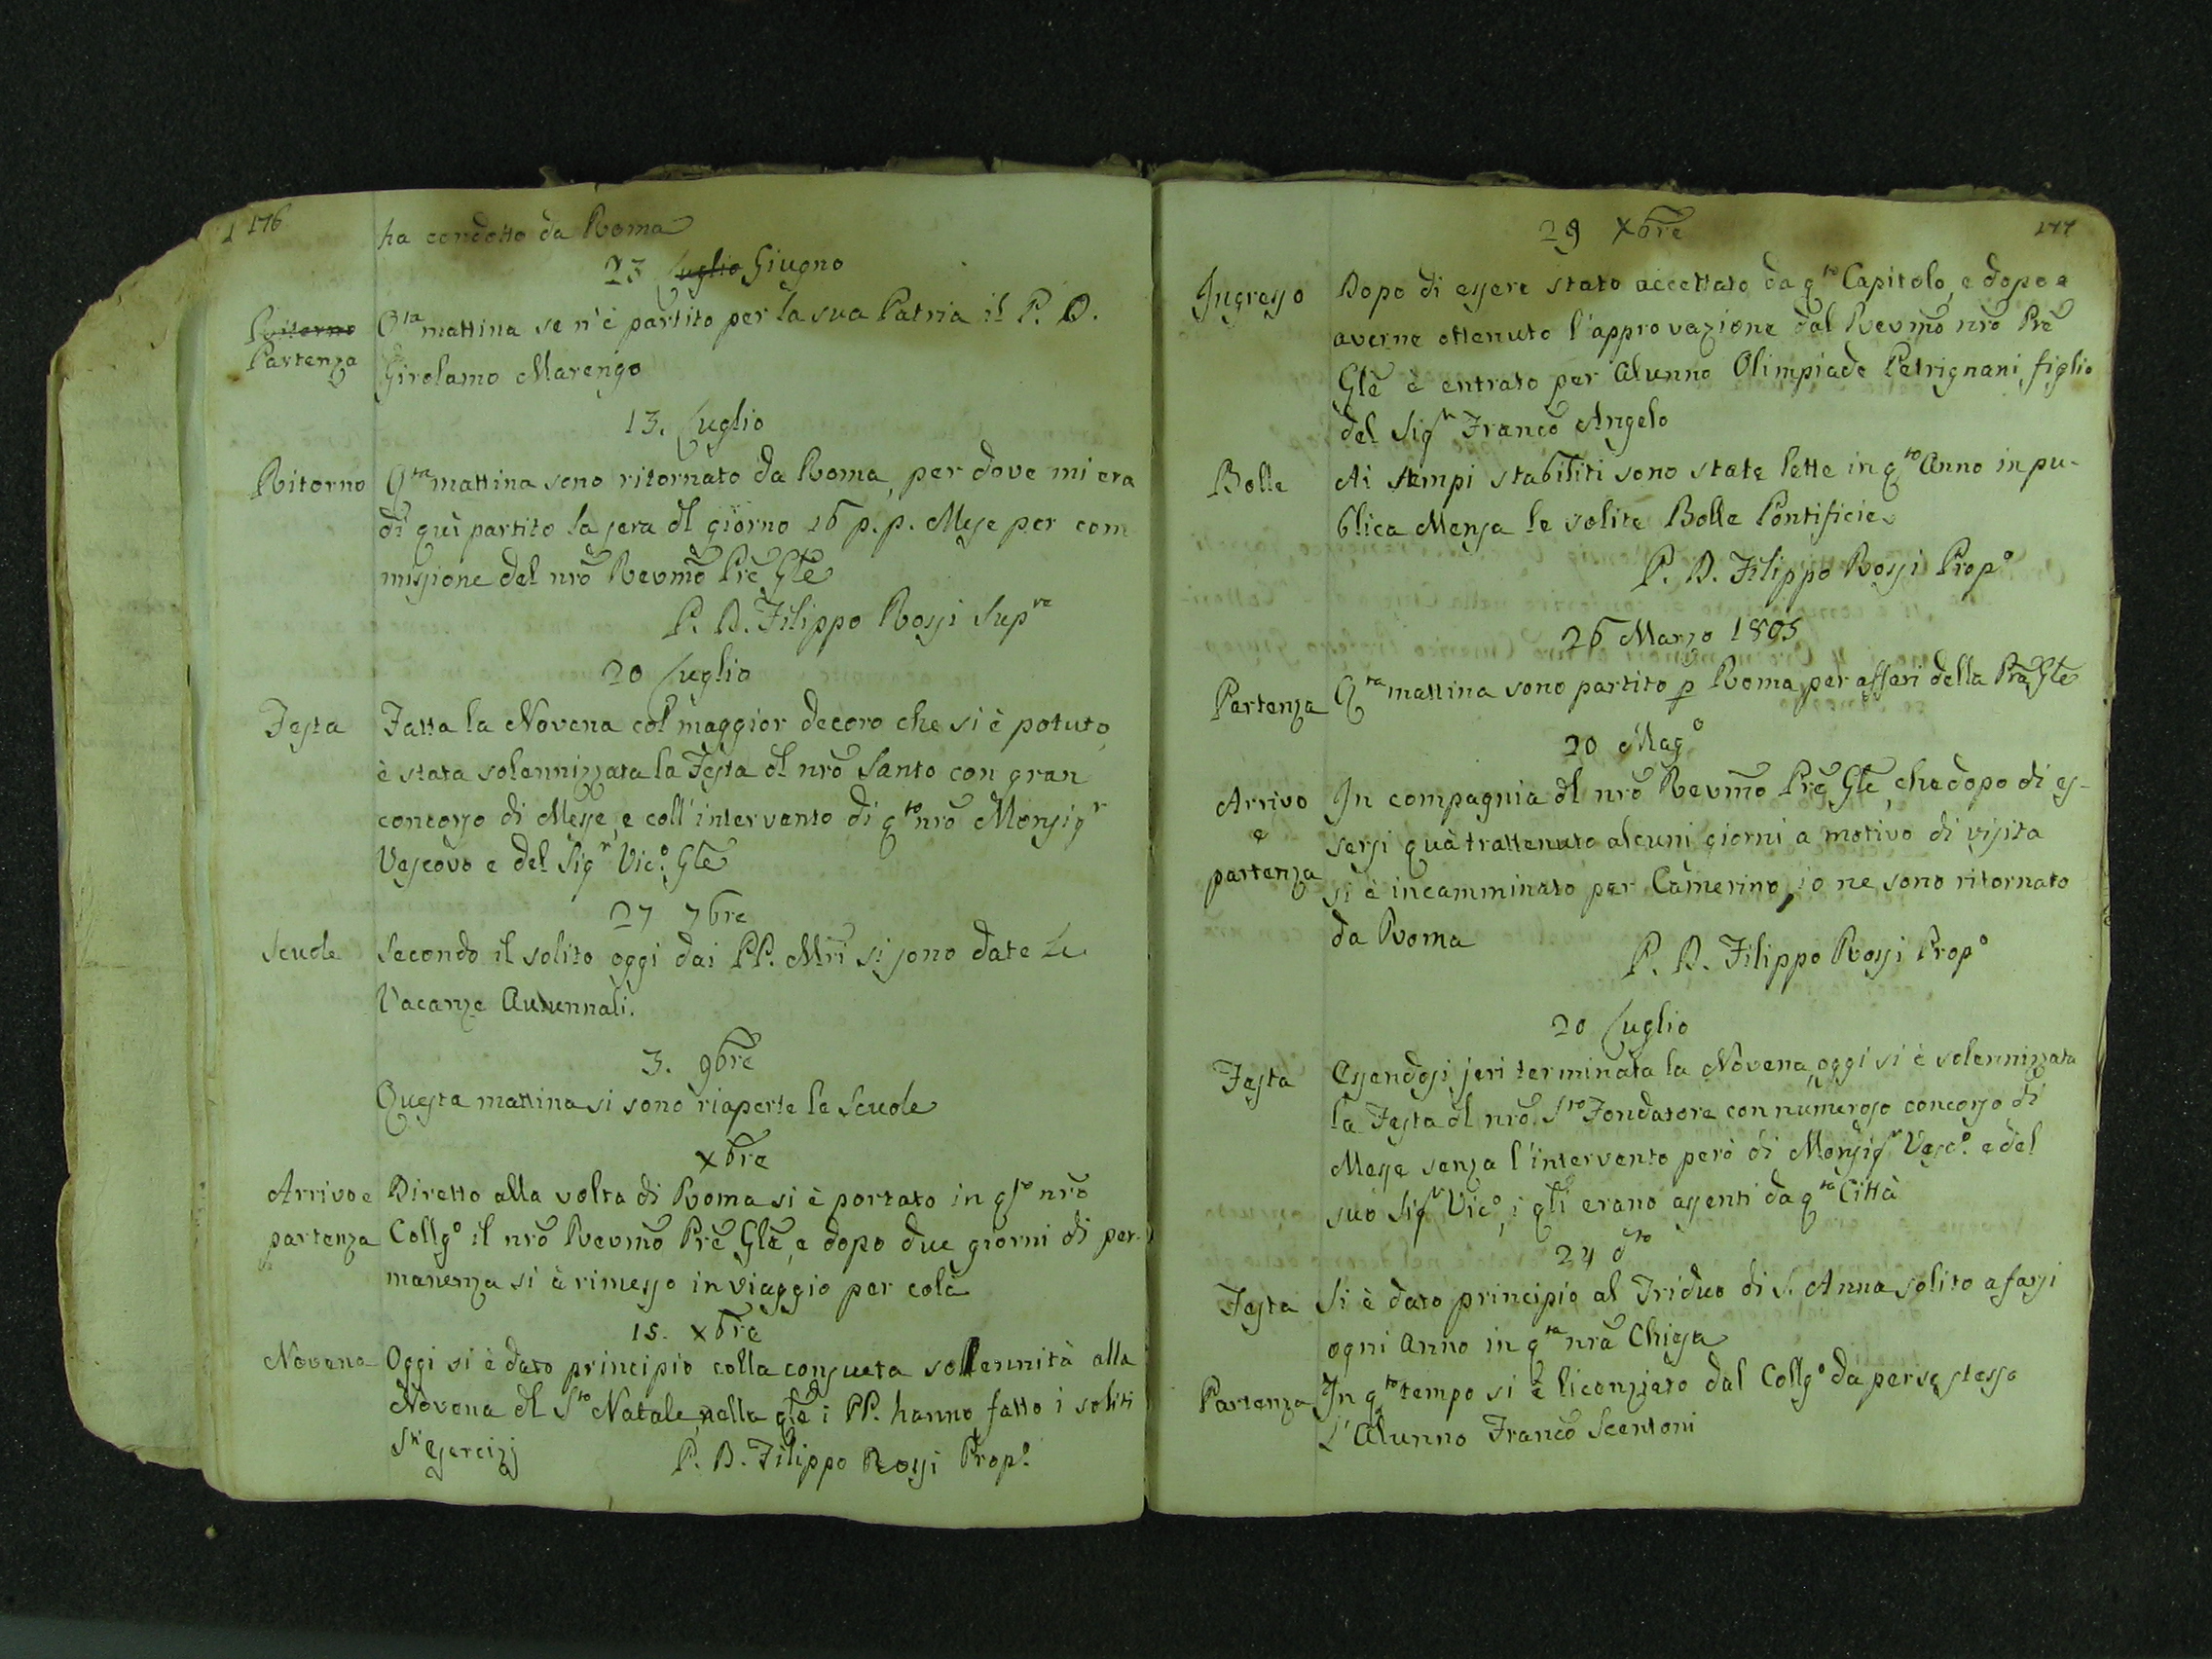 176
ha condotto da Roma
23 Luglio Giugno
Ritorno
Partenza
Qta mattina se n'è partito per la sua Patria il P. D.
Girolamo Marengo
13. Luglio
Ritorno Qta mattina sono ritornato da Roma, per dove mi era
di quì partito la sera dl giorno 16 p. p. Mese per com
missione del nrõ Revmõ Prẽ Glẽ
P. D. Filippo Rossi Supre
20 Luglio
Festa Fatta la Novena col maggior decoro che si è potuto,
è stata solennizzata la Festa dl nrõ Santo con gran
concorso di Messe, e coll'intervento di qto nrõ Monsigr
Vescovo e del Sigr Vico. Glẽ
27 7bre
Scuole Secondo il solito oggi dai PP. Mrĩ si sono date le
Vacanze Autunnali.
3. 9bre
Questa mattina si sono riaperte le Scuole
Xbre
Arrivo e Diretto alla volta di Roma si è portato in qsto nrõ
partenza Collgo il nrõ Revmõ Prẽ Glẽ, e dopo due giorni di per-
manenza si è rimesso in viaggio per colà
15. Xbre
Novena Oggi si è dato principio colla consueta sollennità alla
Novena dl Sto Natale, nella qlẽ i PP. hanno fatto i soliti
Sti Esercizj P. D. Filippo Rossi Propo.
177
29 Xbre
Ingresso Dopo di essere stato accettato da qto Capitolo, e dopo e
averne ottenuto l'approvazione dal Revmõ nrõ Prẽ
Glẽ è entrato per Alunno Olimpiade Petrignani figlio
del Sigr Francõ Angelo
Bolle Ai tempi stabiliti sono state lette in qto Anno in pu-
blica Mensa le solite Bolle Pontificie
P. D. Filippo Rossi Propo
26 Marzo 1805
Partenza Qta mattina sono partito p Roma per affari della Prã Glẽ
20 Mago
Arrivo In compagnia dl nrõ Revmõ Prẽ Glẽ, che dopo di es-
e
sersi quà trattenuto alcuni giorni a motivo di visita
partenza si è incamminato per Camerino, io ne sono ritornato
da Roma
P. D. Filippo Rossi Propo
20 Luglio
Festa Essendosi jeri terminata la Novena, oggi si è solennizzata
la Festa dl nrõ Sto Fondatore con numeroso concorso di
Messe senza l'intervento però di Monsigr Vesco. e del
suo Sigr Vico, i qlĩ erano assenti da qta Città
24 dto
Festa Si è dato principio al Triduo di S. Anna solito a farsi
ogni Anno in qta nrã Chiesa
Partenza In qto tempo si è licenziato dal Collgo da perse stesso
L'Alunno Francõ Scentoni